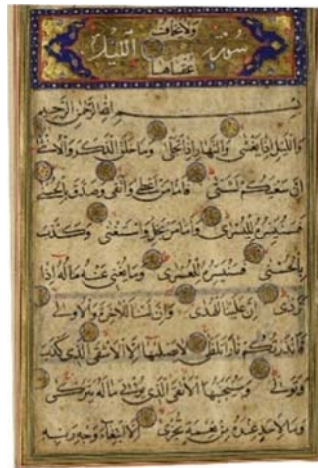 ولا يخاف
سورة الليل
عقباها
بسم الله الرحمن الرحيم
وَاللَّيْلِ إِذَا يَغْشَى وَالنَّهَارِ إِذَا تَجَلَّى وَمَا خَلَقَ الذَّكَرَ وَالْأُنْثَى
إِنَّ سَعْيَكُمْ لَشَتَّى فَأَمَّا مَنْ أَعْطَى وَاتَّقَى وَصَدَّقَ بِالْحُسْنَى
فَسَنُيَسِّرُهُ لِلْيُسْرَى وَأَمَّا مَنْ بَخِلَ وَاسْتَغْنَى وَكَذَّبَ
بِالْحُسْنَى فَسَنُيَسِّرُهُ لِلْعُسْرَى وَمَا يُغْنِي عَنْهُ مَالُهُ إِذَا
تَرَدَّى إِنَّ عَلَيْنَا لَلْهُدَى وَإِنَّ لَنَا لَلْآخِرَةَ وَالْأُولَى
فَأَنْذَرْتُكُمْ نَارًا تَلَظَّى لَا يَصْلَيهَا إِلَّا الْأَشْقَى الَّذِي كَذَّبَ
وَتَوَلَّى وَسَيُجَنَّبُهَا الْأَتْقَى الَّذِي يُؤْتِي مَالَهُ يَتَزَكَّى
وَمَا لِأَحَدٍ عِنْدَهُ مِنْ نِعْمَةٍ تُجْزَى إِلَّا ابْتِغَاءَ وَجْهِ رَبِّهِ